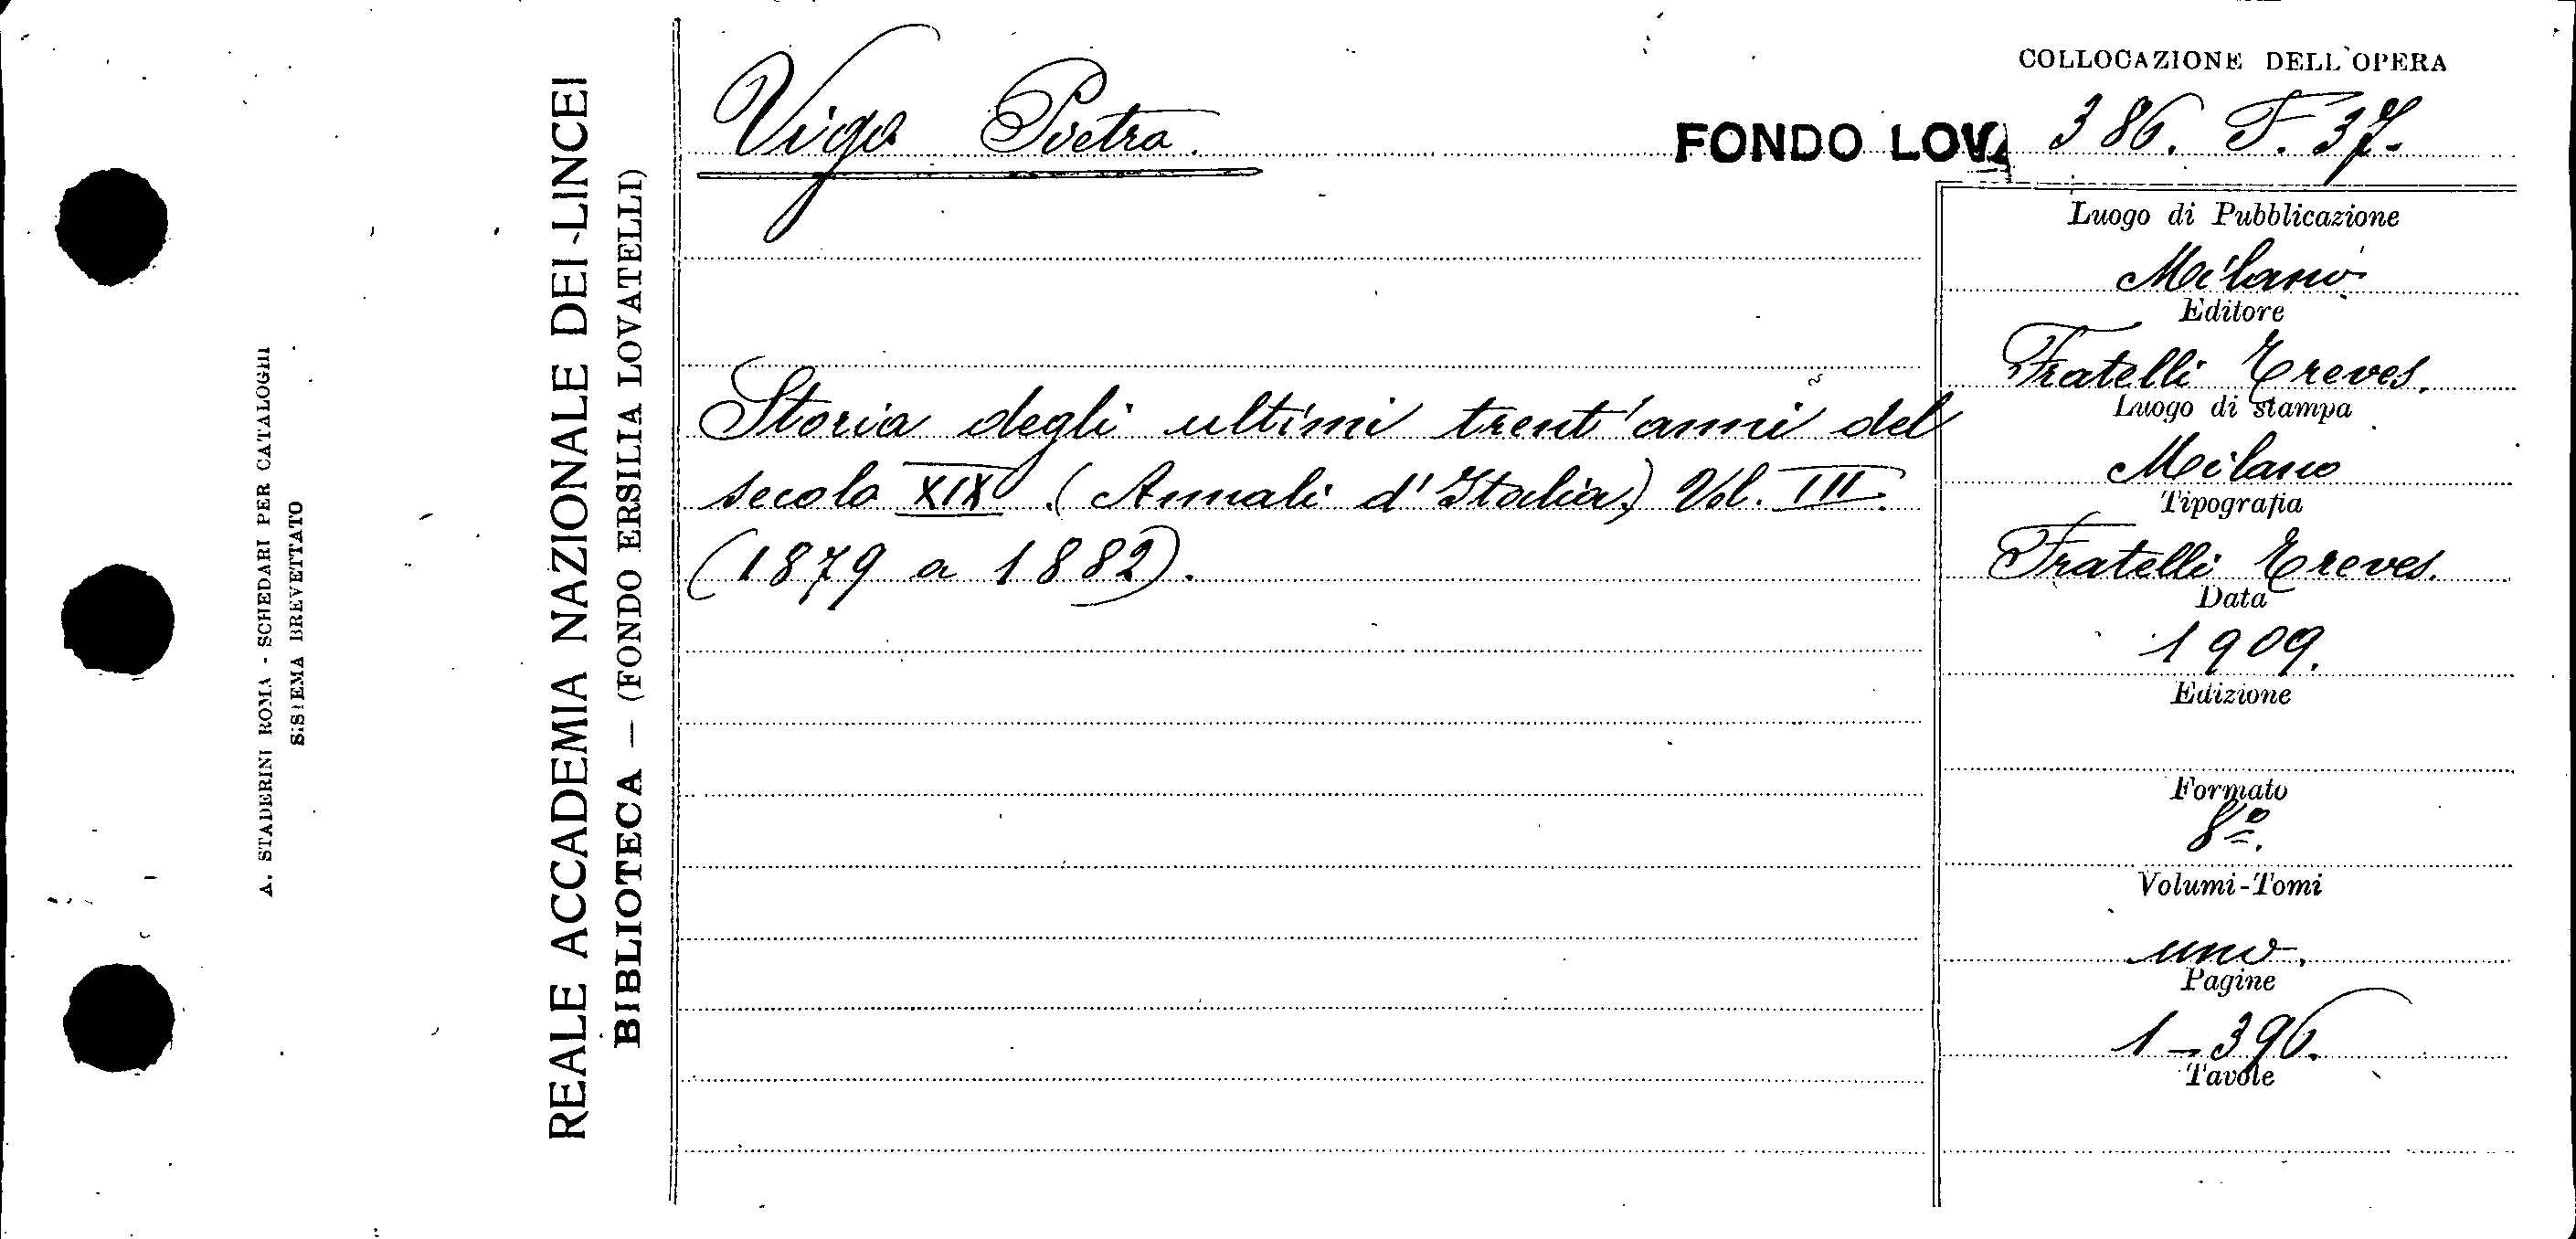 A. STADERINI ROMA - SCHEDARI PER CATALOGHI
SISTEMA BREVETTATO
REALE ACCADEMIA NAZIONALE DEI LINCEI
BIBLIOTECA — (FONDO ERSILIA LOVATELLI)
Vigo Pietro.
FONDO LOV.
COLLOCAZIONE DELL'OPERA
386. F. 37.
Storia degli ultimi trent'anni del
secolo XIX. (Annali d'Italia) Vol. III.
(1879 a 1882).
Luogo di Pubblicazione
Milano
Editore
Fratelli Treves.
Luogo di stampa
Milano
Tipografia
Fratelli Treves.
Data
1909.
Edizione
Formato
8º.
Volumi-Tomi
uno.
Pagine
1-396.
Tavole